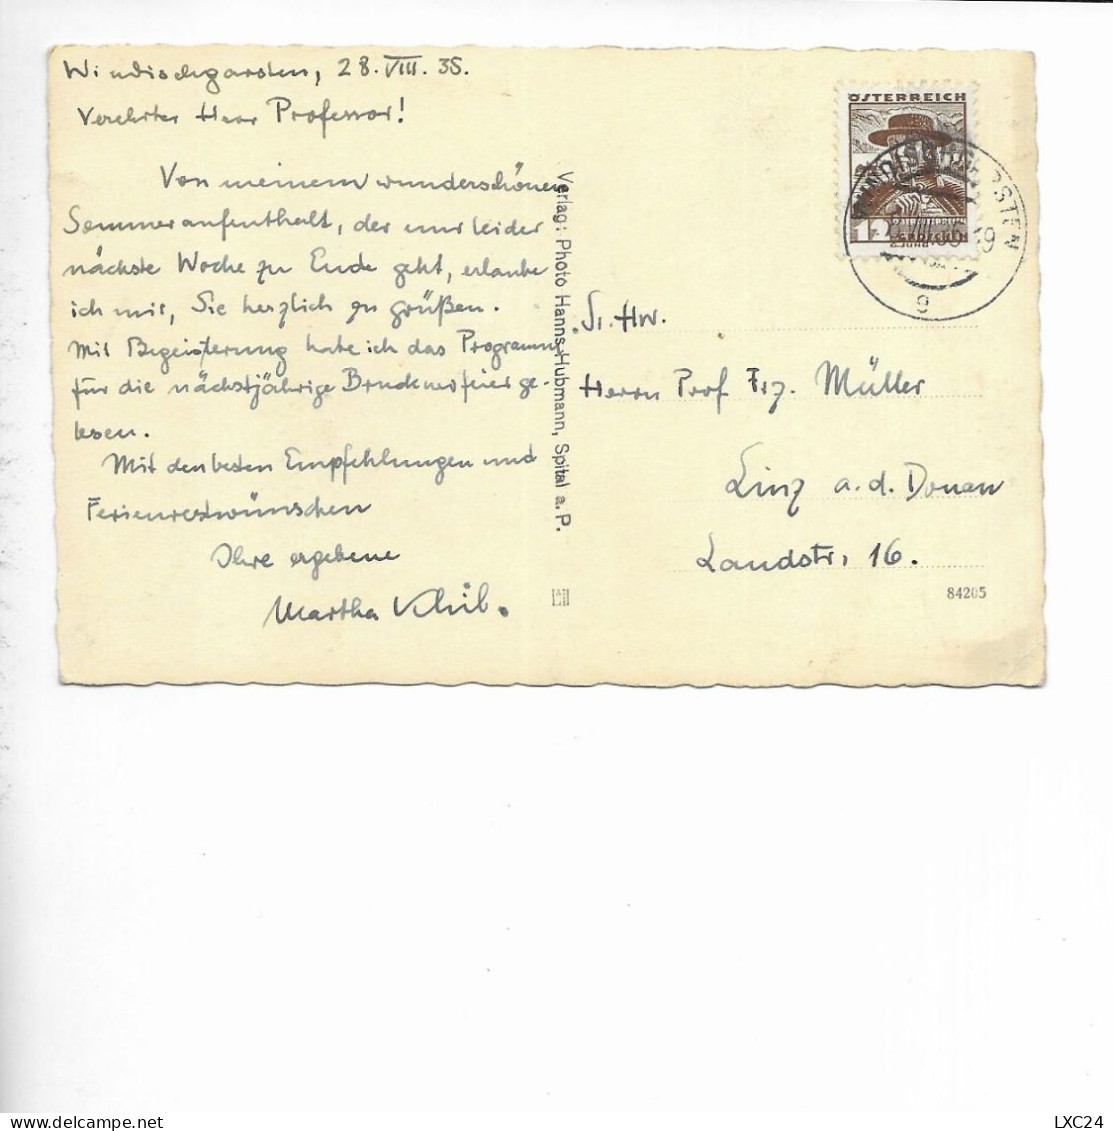 Windischgarsten, 28. VIII. 35.
Verehrter Herr Professor!
Von meinem wunderschönen
Sommeraufenthalt, der nur leider
nächste Woche zu Ende geht, erlaube
ich mir, Sie herzlich zu grüßen.
Mit Begeisterung habe ich das Programm
für die nächstjährige Brucknerfeier ge-
lesen.
Mit den besten Empfehlungen und
Ferienwünschen
Ihre ergebene
Martha
Verlag: Photo Hanns Hubmann, Spital a. P.
ÖSTERREICH
12
GROSCHEN
g
Sr. Hw.
Herrn Prof Frz. Müller
Linz a. d. Donau
Landstr. 16.
84205
LXC24